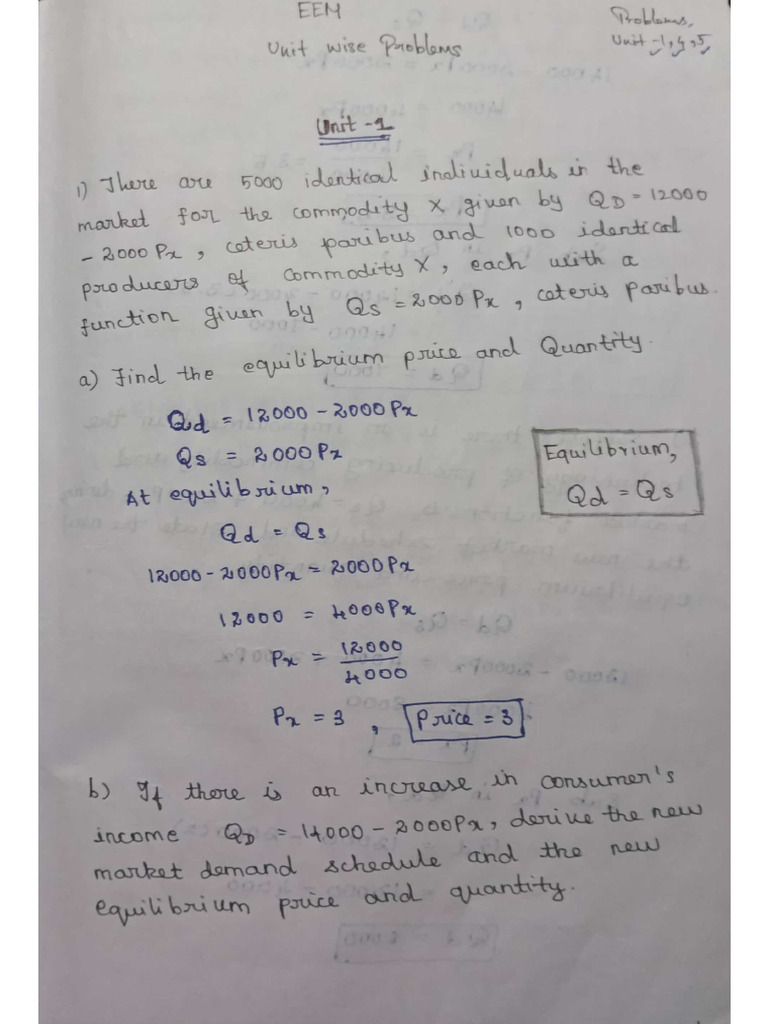 EEM
Problems,
Unit -1,4,5
Unit wise Problems
Unit -1
1) There are 5000 identical individuals in the
market for the commodity X given by QD = 12000
- 2000 Px, ceteris paribus and 1000 identical
producers of commodity X, each with a
function given by Qs = 2000 Px, ceteris paribus.
a) Find the equilibrium price and Quantity.
Qd = 12000 - 2000 Px
Qs = 2000 Px
Equilibrium,
Qd = Qs
At equilibrium,
Qd = Qs
12000 - 2000 Px = 2000 Px
12000 = 4000 Px
Px = 12000
4000
Px = 3, Price = 3
b) If there is an increase in consumer's
income QD = 14000 - 2000 Px, derive the new
market demand schedule and the new
equilibrium price and quantity.